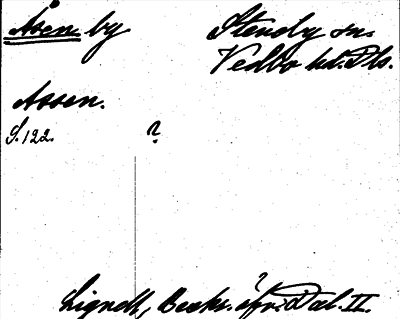 Åsen by Steneby sn.
Vedbo hd. Dls.
Assen.
S. 122. ?
Lignell, Beskr. öfv. Dal. II.